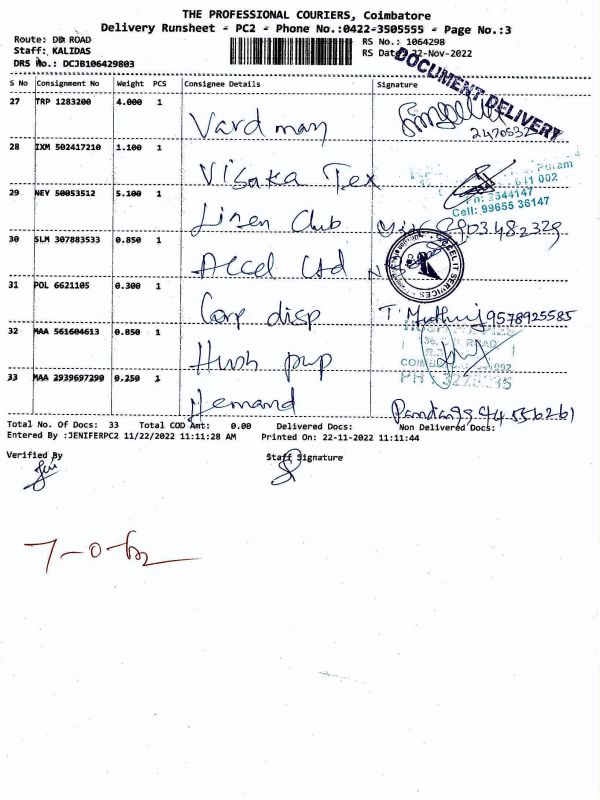 THE PROFESSIONAL COURIERS, Coimbatore
Delivery Runsheet - PC2 - Phone No.:0422-3505555 - Page No.:3
Route: DB ROAD RS No.: 1064298
Staff: KALIDAS RS Date 22-Nov-2022
DRS No.: DCJB106429803
DOCUMENT DELIVERY
S No Consignment No Weight PCS Consignee Details Signature
27 TRP 1283200 4.000 1 Vardman 2470532
28 IXM 502417210 1.100 1 Visaka Tex
Puram
641 002
Ph: 2544147
Cell: 99655 36147
29 NEV 50053512 5.100 1 Linen Club
30 SLM 307883533 0.850 1 Accel Ltd
ACCEL IT SERVICES
31 POL 6621105 0.300 1 Corp disp T. Muthuj 9578925585
32 MAA 561604613 0.850 1 Hush pup
ROAD
33 MAA 2939697290 0.250 1 Demand
Total No. Of Docs: 33 Total COD Amt: 0.00 Delivered Docs: Non Delivered Docs:
Entered By :JENIFERPC2 11/22/2022 11:11:28 AM Printed On: 22-11-2022 11:11:44
Verified By Staff Signature